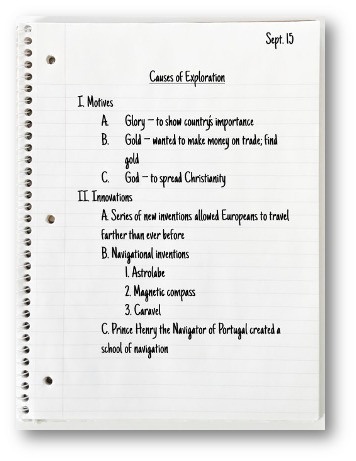 Sept. 15
Causes of Exploration
I. Motives
A. Glory – to show country's importance
B. Gold – wanted to make money on trade; find
gold
C. God – to spread Christianity
II. Innovations
A. Series of new inventions allowed Europeans to travel
farther than ever before
B. Navigational inventions
1. Astrolabe
2. Magnetic compass
3. Caravel
C. Prince Henry the Navigator of Portugal created a
school of navigation